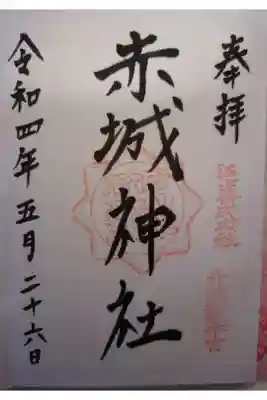 奉拝
赤城神社
令和四年五月二十六日